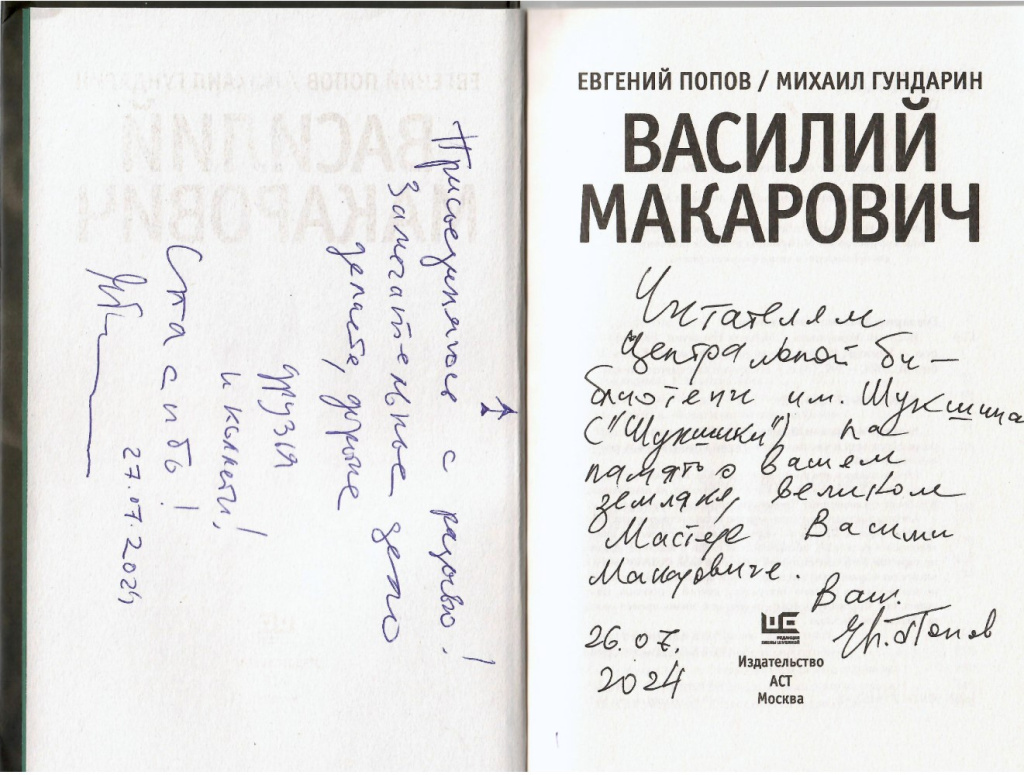 Присоединяюсь с радостью!
Замечательное дело
делаете, дорогие
друзья
и коллеги!
Спасибо!
27.07.2024
ЕВГЕНИЙ ПОПОВ / МИХАИЛ ГУНДАРИН
ВАСИЛИЙ
МАКАРОВИЧ
Читателям
Центральной би-
блиотеки им. Шукшина
("Шукшинки") на
память о вашем
земляке, великом
Мастере Василии
Макаровиче.
Ваш
Евг. Попов
26.07.
2024
РЕДАКЦИЯ
ЕЛЕНЫ ШУБИНОЙ
Издательство
АСТ
Москва